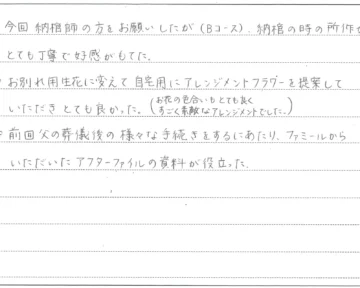 今回 納棺師の方をお願いしたが(Bコース)、納棺の時の所作が
とても丁寧で好感がもてた。
お別れ用生花に変えて自宅用にアレンジメントフラワーを提案して
いただきとても良かった。(お花の色合いもとても良く
すごく素敵なアレンジメントでした。)
前回父の葬儀後の様々な手続きをするにあたり、ファミールから
いただいたアフターファイルの資料が役立った。